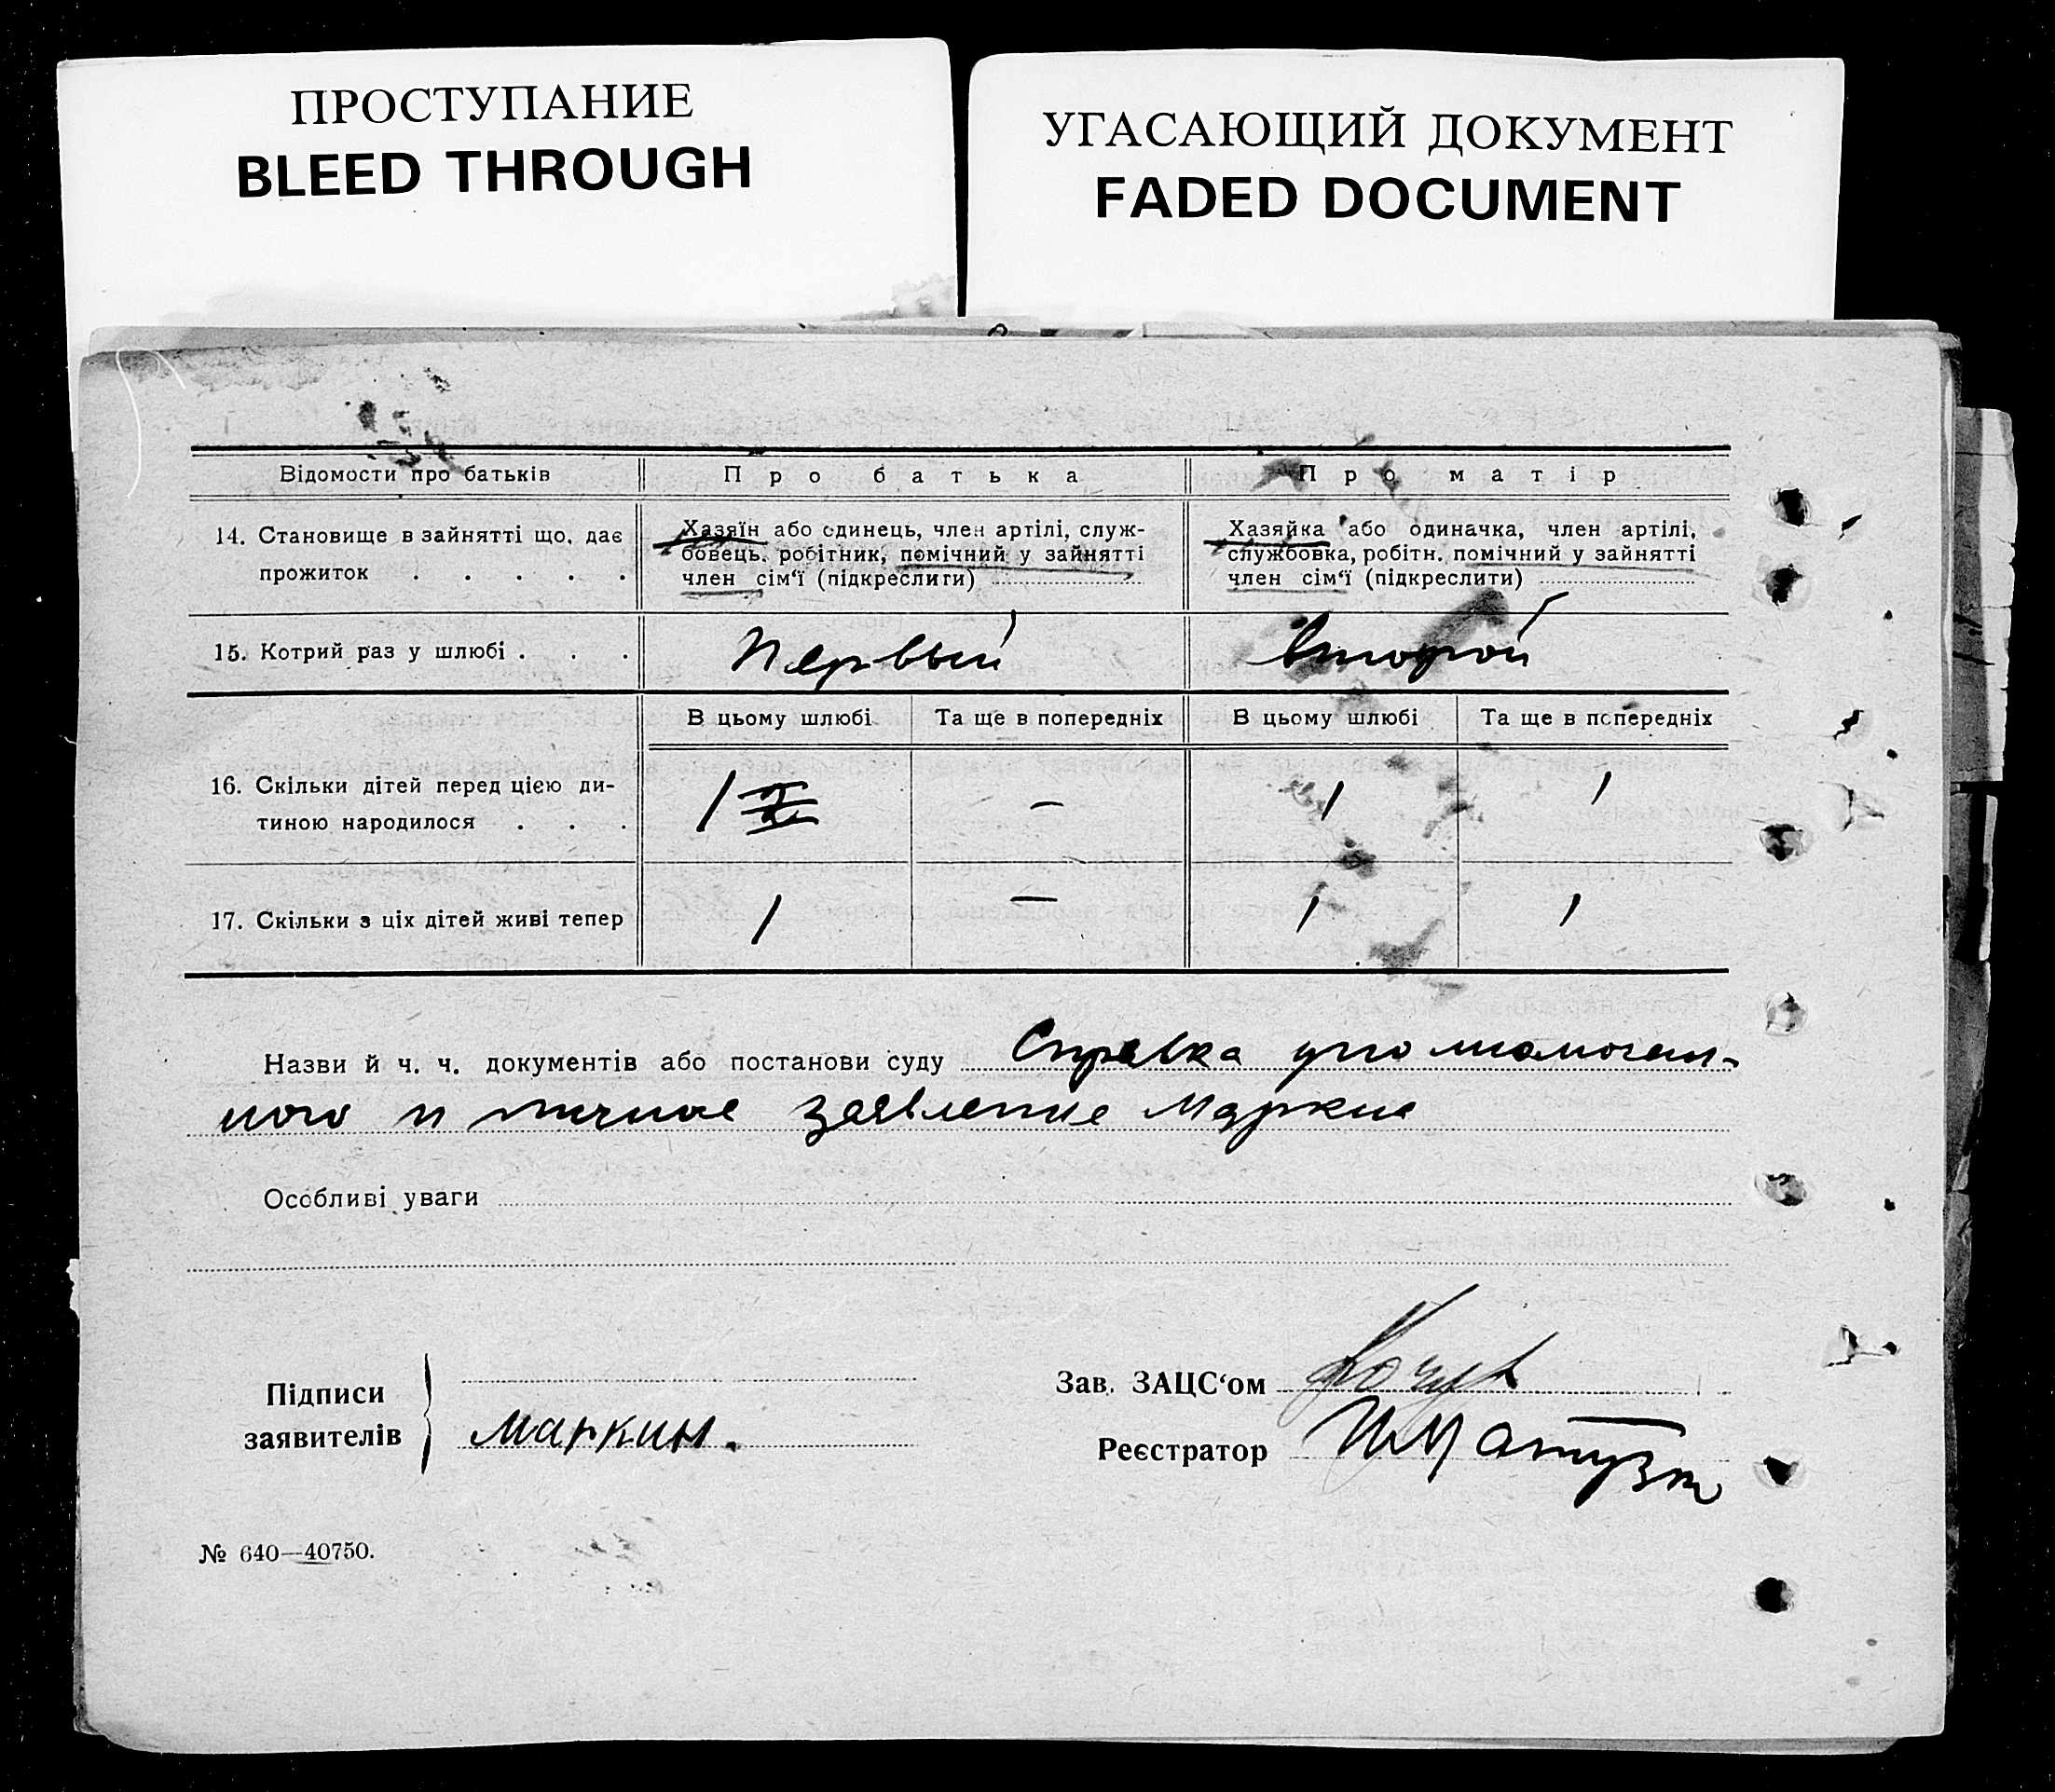 ПРОСТУПАНИЕ
BLEED THROUGH
УГАСАЮЩИЙ ДОКУМЕНТ
FADED DOCUMENT
Відомости про батьків
Про батька
Про матір
14. Становище в зайнятті що, дає
прожиток . . . . .
Хазяїн або одинець, член артілі, служ-
бовець, робітник, помічний у зайнятті
член сім‘ї (підкреслиги)
Хазяйка або одиначка, член артілі,
службовка, робітн. помічний у зайнятті
член сім‘ї (підкреслити)
15. Котрий раз у шлюбі . . .
Первый
второй
В цьому шлюбі
Та ще в попередніх
В цьому шлюбі
Та ще в попередніх
16. Скільки дітей перед цією ди-
тиною народилося . . .
1
—
1
1
17. Скільки з ціх дітей живі тепер
1
—
1
1
Назви й ч. ч. документів або постанови суду Справка уполномочен-
ного и личное заявление Маркина
Особливі уваги
Підписи
заявителів
Маркин.
Зав. ЗАЦС‘ом
Реєстратор
№ 640—40750.